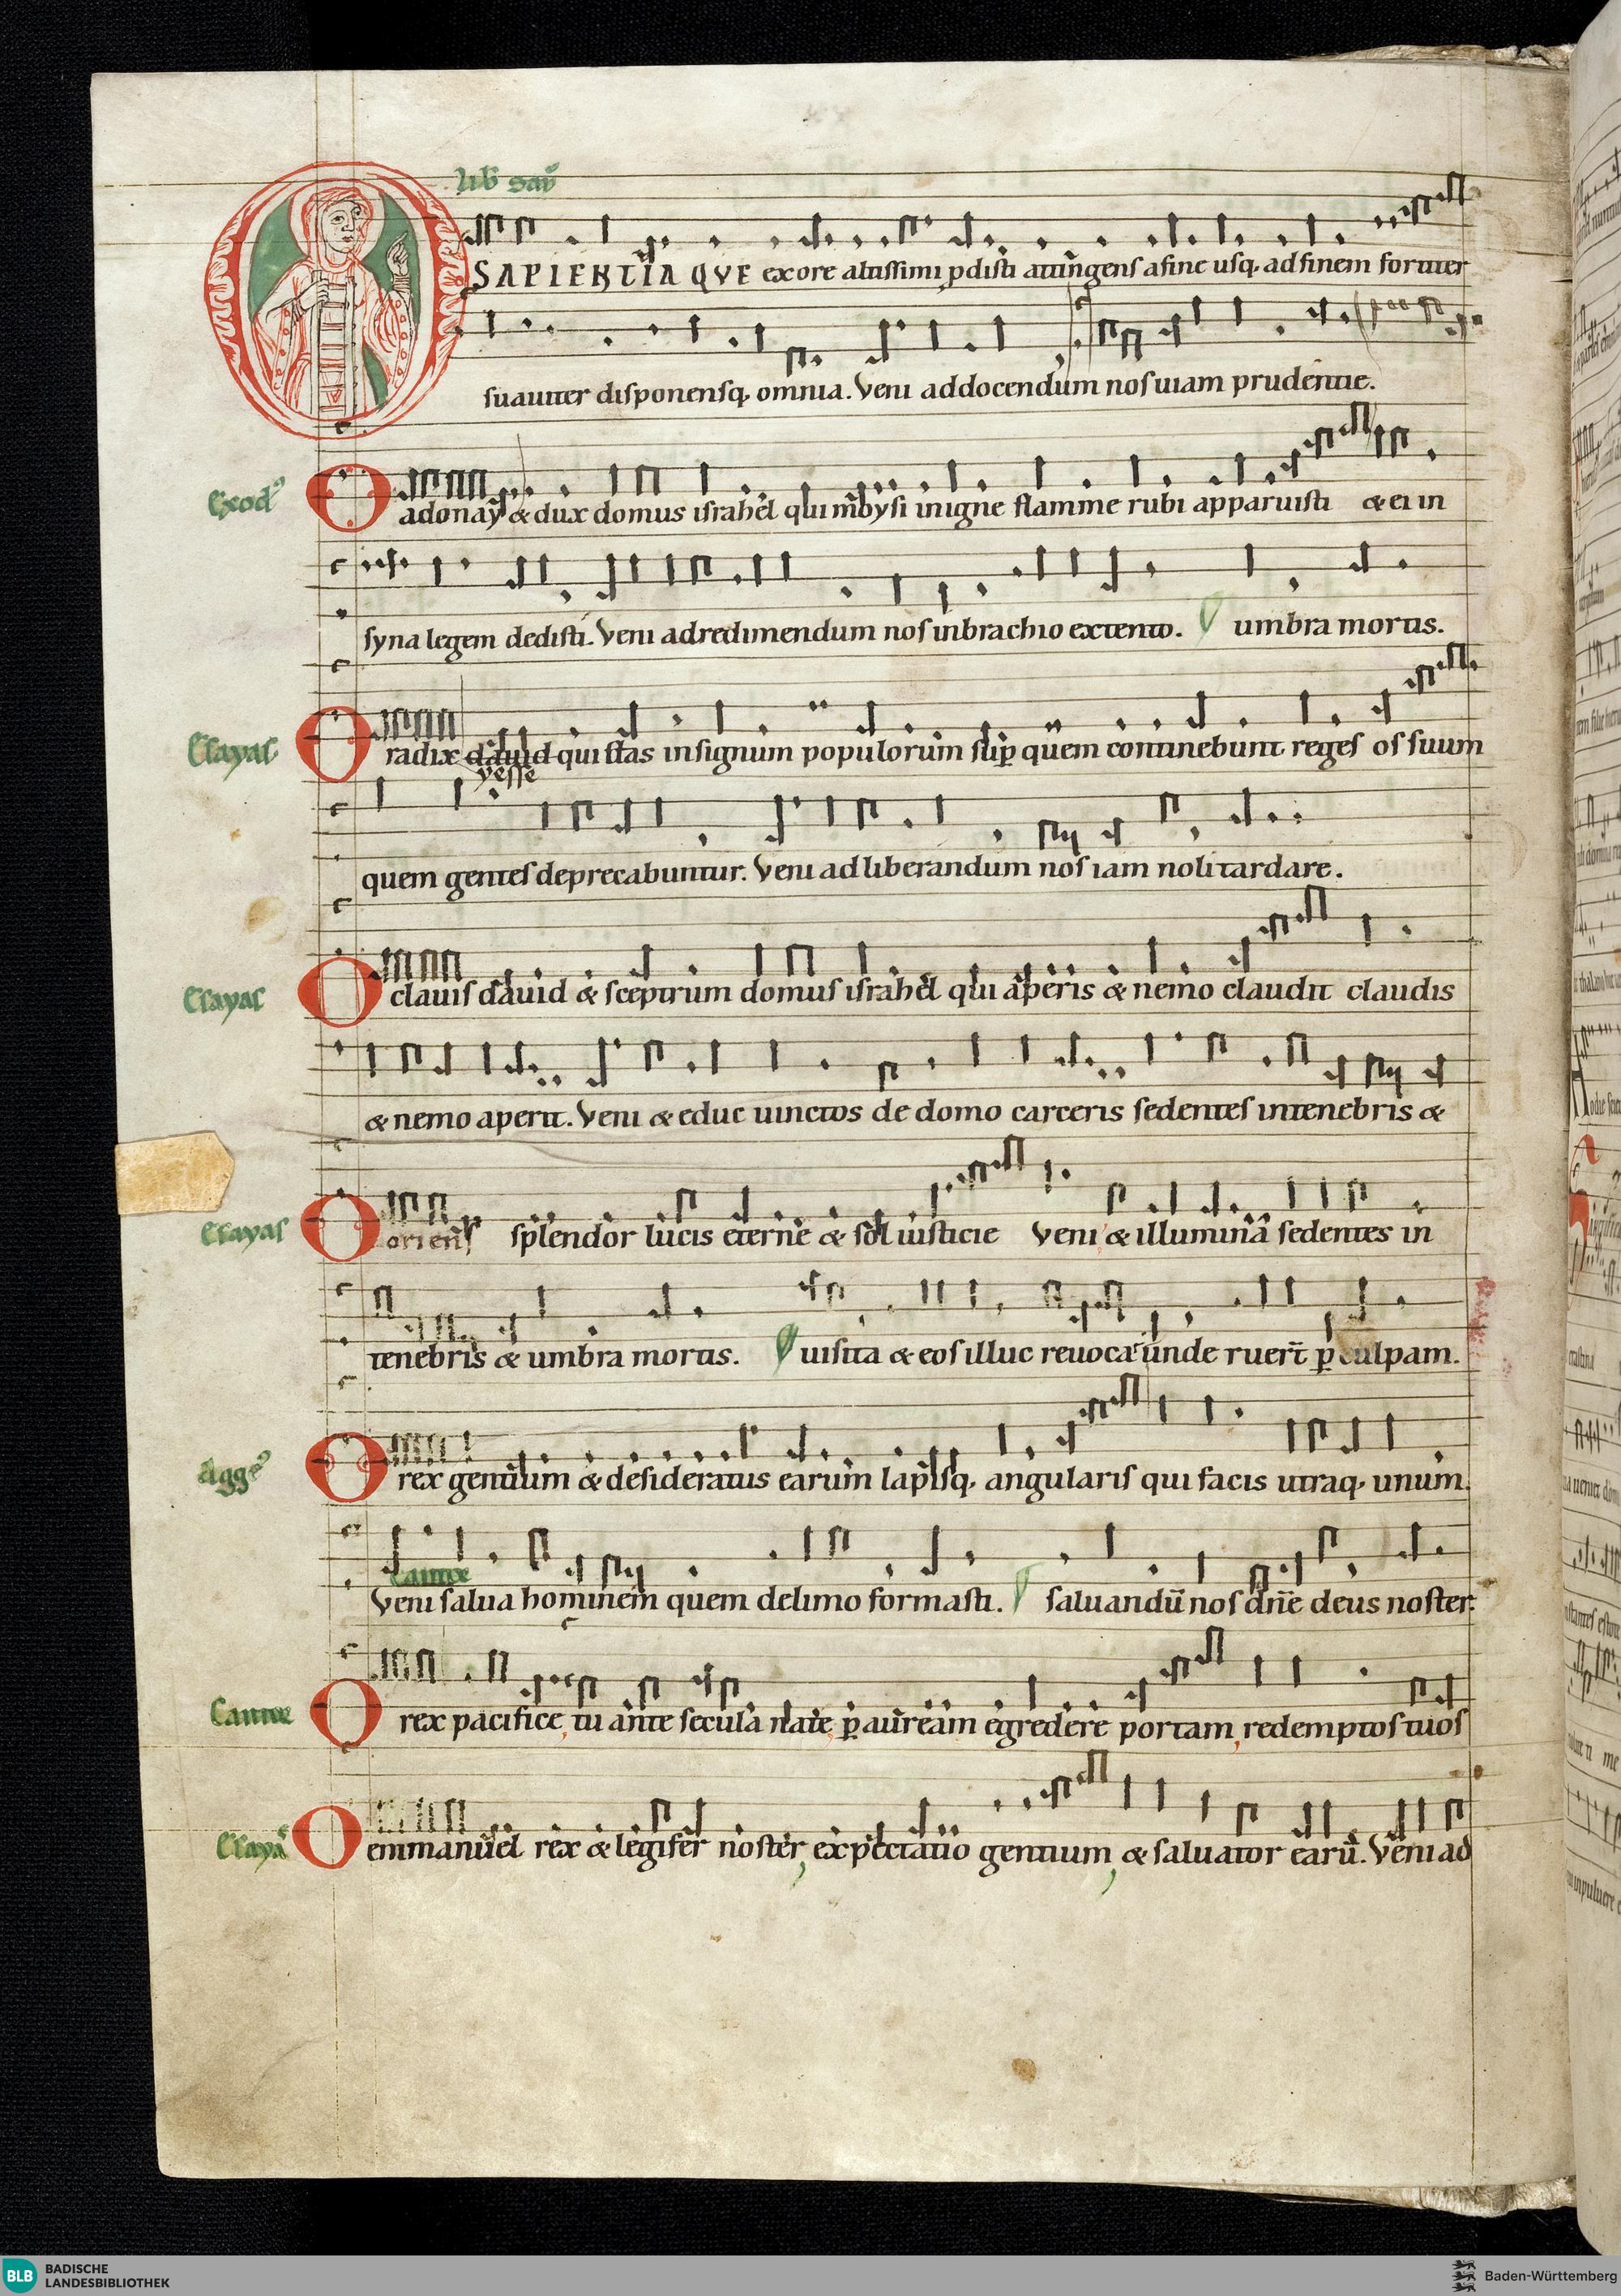 O SAPIENTIA QVE ex ore altissimi pdisti attin̄gens a fine usq. ad finem fortiter
suauiter disponensq. omnia. Veni ad docendum nos uiam prudentie.
Exod⁹
O adonay & dux domus israhel qui moysi in igne flamme rubi apparuisti & ei in
syna legem dedisti. Veni ad redimendum nos in brachio extento. V umbra mortis.
Esayas
O radix dauid qui stas in signum populorum sup quem continebunt reges os suum
yesse
quem gentes deprecabuntur. Veni ad liberandum nos iam noli tardare.
Esayas
O clauis dauid & sceptrum domus israhel qui aperis & nemo claudit claudis
& nemo aperit. Veni & educ uinctos de domo carceris sedentes in tenebris &
Esayas
O oriens splendor lucis eterne & sol iusticie Veni & illumina sedentes in
tenebris & umbra mortis. V uisita & eos illuc reuoca unde ruer̄t p culpam.
Agge⁹
O rex gentium & desideratus earum lapisq. angularis qui facis utraq. unum.
Veni salua hominem quem de limo formasti. V saluandū nos dn̄e deus noster.
O rex pacifice, tu ante secula nate, p auream egredere portam, redemptos tuos
Esayas
O emmanuel rex & legifer noster, expectatio gentium, & saluator earū. Veni ad
BLB BADISCHE
LANDESBIBLIOTHEK
Baden-Württemberg